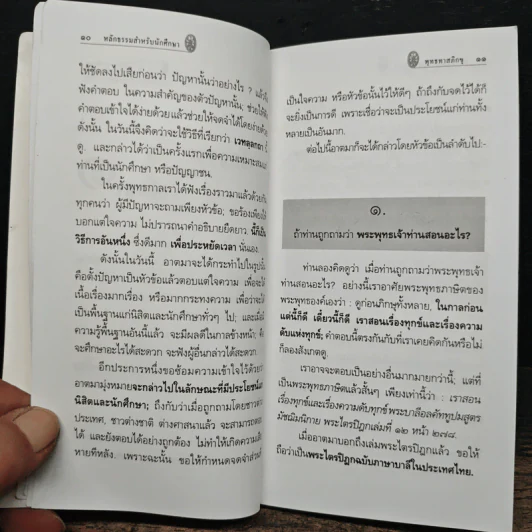 ๑๐ หลักธรรมสำหรับนักศึกษา
ให้ชัดลงไปเสียก่อนว่า ปัญหานั้นว่าอย่างไร ? แล้ว
ฟังคำตอบ ในความสำคัญของตัวปัญหานั้น; ช่วยให้
คำตอบเข้าใจได้ง่ายด้วยแล้วช่วยให้จดจำได้โดยง่ายด้วย
ดังนั้น ในวันนี้จึงคิดว่าจะใช้วิธีที่เรียกว่า
ดู. และกล่าวได้ว่าเป็นครั้งแรกเพื่อความเหมาะสม
ท่านที่เป็นนักศึกษา หรือปัญญาชน.
ในครั้งพุทธกาลเราได้ฟังเรื่องราวมาแล้วด้วย
ทุกคนว่า ผู้มีปัญหาจะถามเพียงหัวข้อ; ขอร้องเพียงให้
บอกแต่ใจความ ไม่ปรารถนาคำอธิบายยืดยาว นี้ก็เป็น
วิธีการอันหนึ่ง ซึ่งดีมาก เพื่อประหยัดเวลา นั่นเอง.
ดังนั้นในวันนี้ อาตมาจะได้กระทำไปในรูป
คือตั้งปัญหาเป็นหัวข้อแล้วตอบแต่ใจความ เพื่อจะได้
เนื้อเรื่องมากเรื่อง หรือมากกระทงความ เพื่อว่าจะ
เป็นพื้นฐานแก่นิสิตและนักศึกษาทั่วๆ ไป; และเมื่อ
ความรู้พื้นฐานอันนี้แล้ว จะมีผลดีในกาลข้างหน้า;
จะศึกษาอะไรได้สะดวก จะฟังผู้อื่นกล่าวได้สะดวก.
อีกประการหนึ่งขอซ้อมความเข้าใจไว้ด้วย
อาตมามุ่งหมายจะกล่าวไปในลักษณะที่มีประโยชน์
นิสิตและนักศึกษา; ถึงกับว่าเมื่อถูกถามโดยชาว
ประเทศ, ชาวต่างชาติ ต่างศาสนาแล้ว จะสามารถตอบ
ได้ และยังตอบได้อย่างถูกต้อง ไม่ทำให้เกิดความ
หายทีหลัง. เพราะฉะนั้น ขอให้กำหนดจดจำส่วนที่
พุทธทาสภิกขุ ๑๑
เป็นใจความ หรือหัวข้อนั้นไว้ให้ดีๆ ถ้าถึงกับจดไว้ได้ก็
จะยิ่งเป็นการดี เพราะเชื่อว่าจะเป็นประโยชน์แก่ท่านทั้ง
หลายเป็นอันมาก.
ต่อไปนี้อาตมาก็จะได้กล่าวโดยหัวข้อเป็นลำดับไป:-
๑.
ถ้าท่านถูกถามว่า พระพุทธเจ้าท่านสอนอะไร?
ท่านลองคิดดูว่า เมื่อท่านถูกถามว่าพระพุทธเจ้า
ท่านสอนอะไร? อย่างนี้เราอาศัยพระพุทธภาษิตของ
พระพุทธองค์เองว่า : ดูก่อนภิกษุทั้งหลาย, ในกาลก่อน
แต่นี้ก็ดี เดี๋ยวนี้ก็ดี เราสอนเรื่องทุกข์และเรื่องความ
ดับแห่งทุกข์; คำตอบนี้ตรงกันกับที่เราเคยคิดกันหรือไม่
ก็ลองสังเกตดู.
เราอาจจะตอบเป็นอย่างอื่นมากมายกว่านี้; แต่ที่
เป็นพระพุทธภาษิตแล้วสั้นๆ เพียงเท่านี้ว่า : เราสอน
เรื่องทุกข์และเรื่องความดับทุกข์ พระบาลีอลคัททูปมสูตร
มัชฌิมนิกาย พระไตรปิฎกเล่มที่ ๑๒ หน้า ๒๗๘.
เมื่ออาตมาบอกถึงเล่มพระไตรปิฎกแล้ว ขอให้
ถือว่าเป็นพระไตรปิฎกฉบับภาษาบาลีในประเทศไทย.